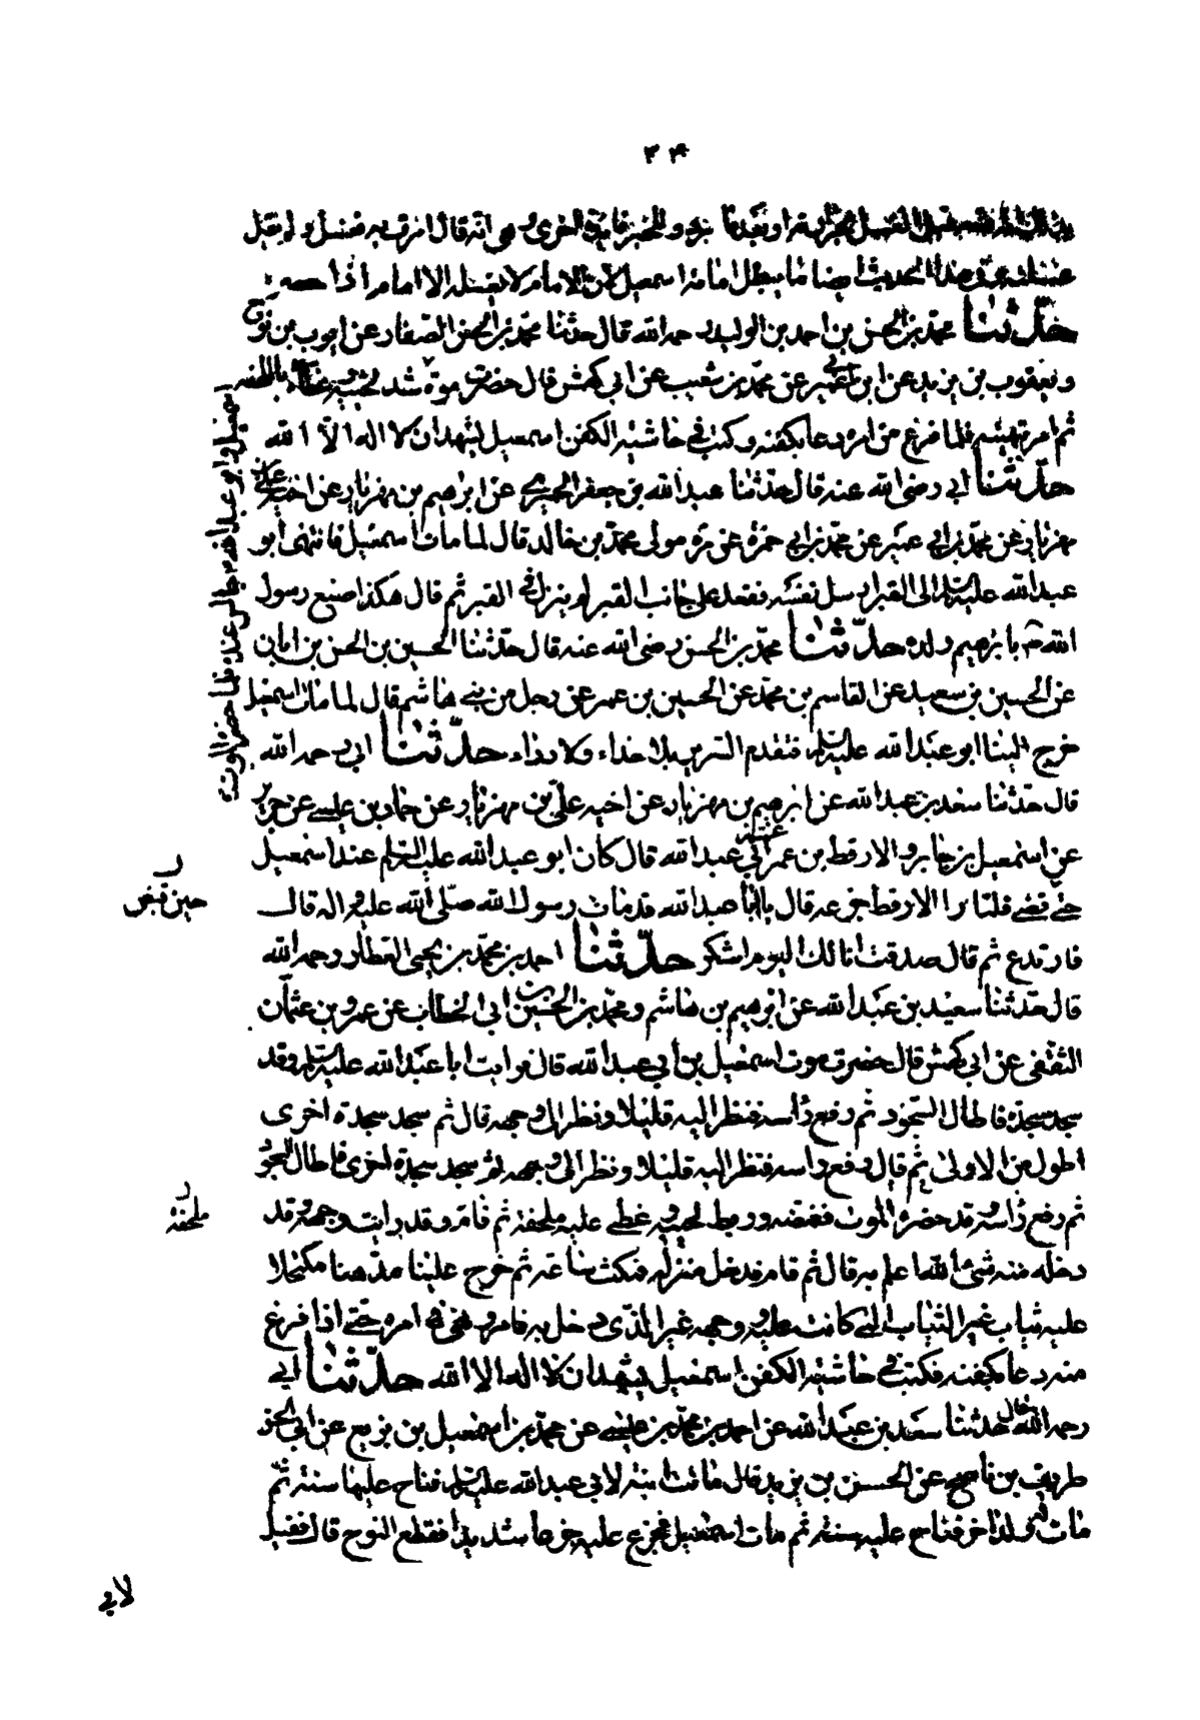 ٣٤
او بعدما برد وللخبر فايدة اخرى وهي انه قال امرت به فغسل ولم يقل
غسلته وفي هذا الحديث ايضا ما يبطل امامة اسمعيل لان الامام لا يغسله الا امام اذا حضره
حدّثنا محمّد بن الحسن بن احمد بن الوليد رحمه الله قال حدثنا محمّد بن الحسن الصّفار عن ايوب بن نوح
ويعقوب بن يزيد عن ابن ابي عمير عن محمّد بن شعيب عن ابي كهمش قال حضرت موت شد لحييه وغطاه بالملحفة
اسمعيل وابو عبد الله جالس عنده فلما حضره الموت
ثم امر بتهيئته فلما فرغ من امره دعا بكفنه وكتب في حاشية الكفن اسمعيل يشهد ان لا اله الّا الله
حدّثنا ابي رضى الله عنه قال حدّثنا عبد الله بن جعفر الحميري عن ابرهيم بن مهزيار عن اخيه علي بن
مهزيار عن محمّد بن ابي عمير عن محمّد بن ابي حمزة عن مرة مولى محمّد بن خالد قال لما مات اسمعيل فانتهى ابو
عبد الله عليه السلم الى القبر ارسل نفسه فقعد على جانب القبر لم ينزل في القبر ثم قال هكذا صنع رسول
الله ص بابرهيم ولده حدّثنا محمّد بن الحسن رضى الله عنه قال حدّثنا الحسين بن الحسن بن ابان
عن الحسين بن سعيد عن القاسم بن محمّد عن الحسين بن عمر عن رجل من بني هاشم قال لما مات اسمعيل
خرج الينا ابو عبد الله عليه السلم فتقدم السرير بلا حذاء ولا رداء حدّثنا ابي رحمه الله
قال حدّثنا سعد بن عبد الله عن ابرهيم بن مهزيار عن اخيه عليّ بن مهزيار عن حماد بن عيسى عن حريز
عن اسمعيل بن جابر والارقط بن عمر عن ابي عبد الله قال كان ابو عبد الله عليه السلم عند اسمعيل
حتى قضى فلمّا راى الارقط جزعه قال يا ابا عبد الله قد مات رسول الله صلّى الله عليه واله قال
حين قبض
فارتدع ثم قال صدقت انا لك اليوم اشكر حدّثنا احمد بن محمّد بن يحيى العطّار رحمه الله
قال حدّثنا سعيد بن عبد الله عن ابرهيم بن هاشم ومحمّد بن الحسين بن ابي الخطاب عن عمرو بن عثمان
الثقفي عن ابي كهمش قال حضرت موت اسمعيل بن ابي عبد الله قال فرايت ابا عبد الله عليه السلم وقد
سجد سجدة فاطال السجود ثم رفع رأسه فنظر اليه قليلا ونظر الى وجهه قال ثم سجد سجدة اخرى
اطول من الاولى ثم قال رفع راسه فنظر اليه قليلا ونظر الى وجهه ثم سجد سجدة اخرى فاطال السجود
ثم رفع رأسه وقد حضره الموت فغمّضه وربط لحييه وغطى عليه ملحفة ثم قام وقد رايت وجهه وقد
ملحفة
دخله منه شئ الله اعلم به قال ثم قام فدخل منزله فمكث ساعة ثم خرج علينا مدّهنا مكتحلا
عليه ثياب غير الثياب التي كانت عليه ووجهه غير الذي دخل به فامر ونهى في امره حتى اذا فرغ
منه دعا بكفنه فكتب في حاشية الكفن اسمعيل يشهد ان لا اله الا الله حدّثنا ابي
رحمه الله قال حدثنا سعد بن عبد الله عن احمد بن محمّد بن عيسى عن محمّد بن اسمعيل بن بزيع عن ابي الحسن
ظريف بن ناصح عن الحسن بن يزيد قال ماتت ابنة لابي عبد الله عليه السلم فناح عليها سنة ثمّ
مات له ولد اخر فناح عليه سنة ثم مات اسمعيل فجزع عليه جزعا شديدا فقطع النوح قال فقيل
لابي